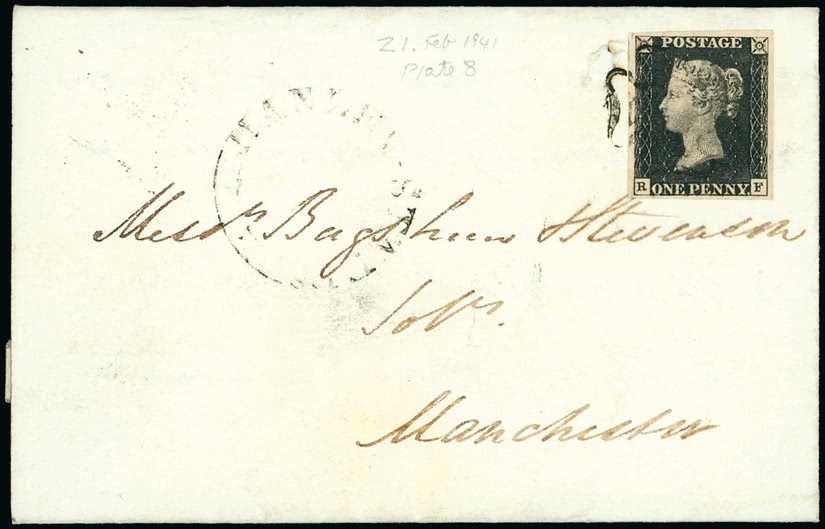 21. Feb 1941
Plate 8
POSTAGE
R ONE PENNY F
HANLEY
Messrs Bagshaw & Stevenson
Solrs.
Manchester